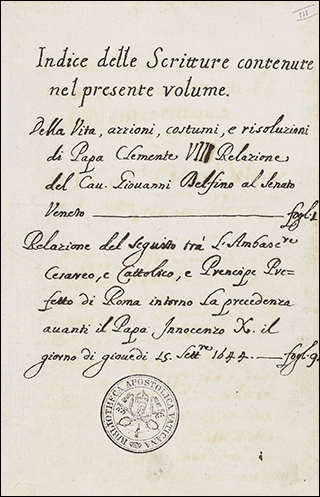 Indice delle Scritture contenute
nel presente volume.
Della Vita, azzioni, costumi, e risoluzioni
di Papa Clemente VIII Relazione
del Cau. Giouanni Delfino al Senato
Veneto fogl. 1
Relazione del Seguito trà L'Ambasc.re
Cesareo, e Cattolico, e Prencipe Pre-
fetto di Roma intorno la precedenza
auanti il Papa Innocenzo X. il
giorno di giouedi 15. Sett.re 1644. fogl. 9
BIBLIOTHECA APOSTOLICA VATICANA